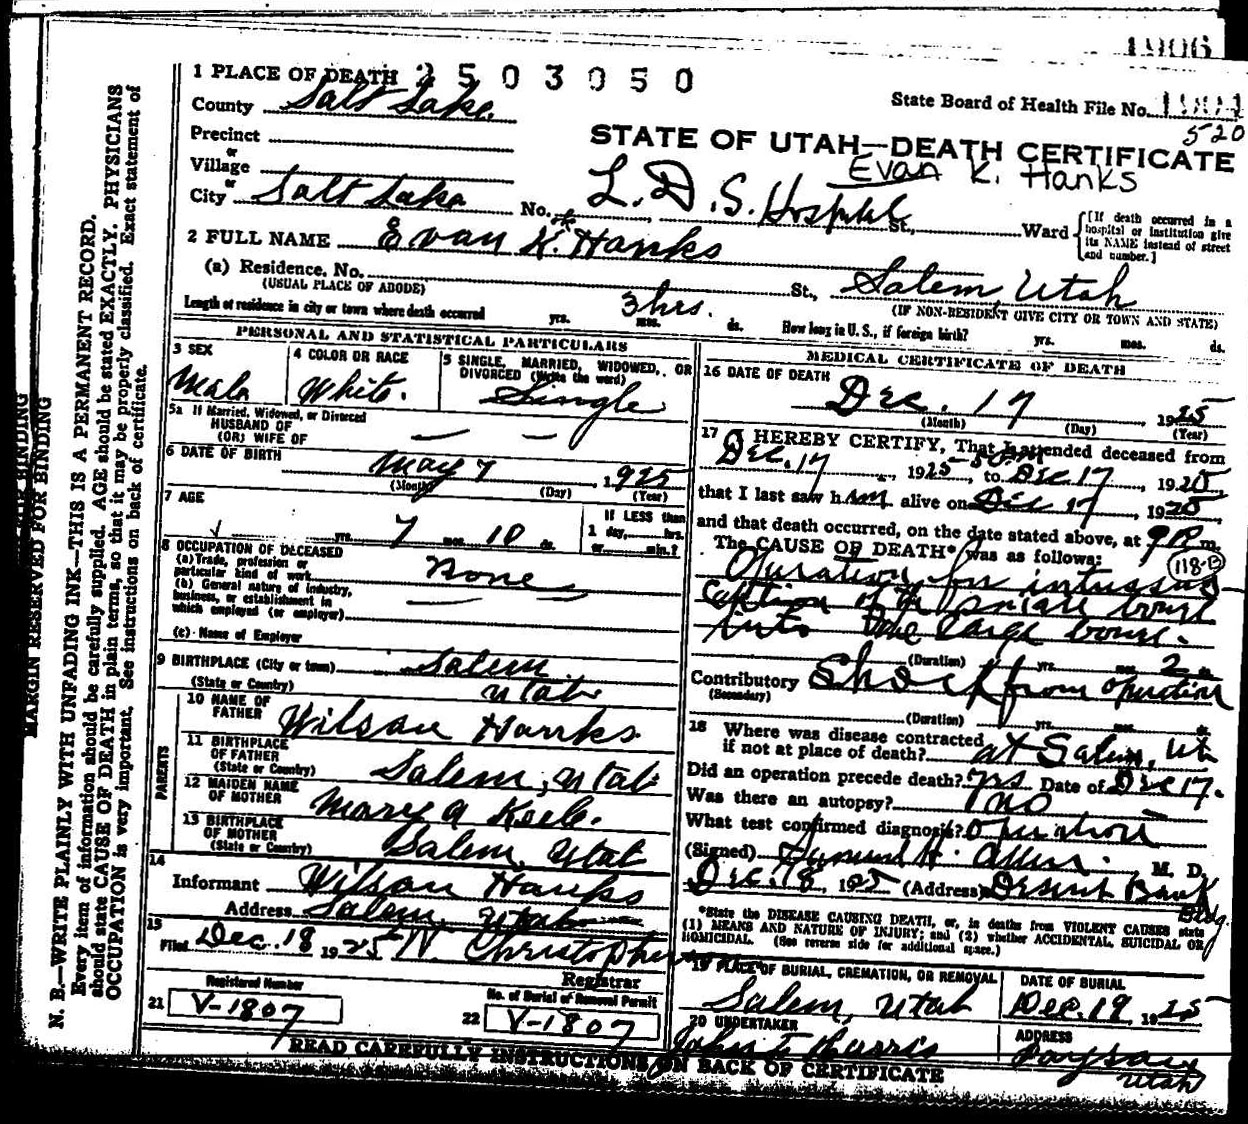 1906
2503050
1 PLACE OF DEATH
County Salt Lake.
State Board of Health File No.
520
STATE OF UTAH—DEATH CERTIFICATE
Evan K. Hanks
Precinct
or
Village
or
City Salt Lake No. L.D.S. Hospital St., Ward
[If death occurred in a hospital or institution give its NAME instead of street and number.]
2 FULL NAME Evan K. Hanks
(a) Residence, No. St., Salem, Utah
(USUAL PLACE OF ABODE) (IF NON-RESIDENT GIVE CITY OR TOWN AND STATE)
Length of residence in city or town where death occurred yrs. 3 hrs. mos. ds. How long in U. S., if foreign birth? yrs. mos. ds.
PERSONAL AND STATISTICAL PARTICULARS
3 SEX
Male
4 COLOR OR RACE
White.
5 SINGLE, MARRIED, WIDOWED, OR DIVORCED (Write the word)
Single
5a If Married, Widowed, or Divorced
HUSBAND OF
(OR) WIFE OF — —
6 DATE OF BIRTH May 7 1925
(Month) (Day) (Year)
7 AGE
yrs. 7 mos. 10 ds.
If LESS than
1 day, hrs.
or min.?
8 OCCUPATION OF DECEASED
(a) Trade, profession or
particular kind of work None
(b) General nature of industry,
business, or establishment in
which employed (or employer)
(c) Name of Employer
9 BIRTHPLACE (City or town) Salem
(State or Country) Utah
PARENTS
10 NAME OF FATHER Wilson Hanks.
11 BIRTHPLACE OF FATHER
(State or Country) Salem, Utah
12 MAIDEN NAME OF MOTHER Mary A
13 BIRTHPLACE OF MOTHER
(State or Country) Salem, Utah
14
Informant Wilson Hanks
Address Salem, Utah
15
Filed Dec. 18 1925 N. Christopherson
Registrar
Registered Number
21 V-1807
No. of Burial of Removal Permit
22 V-1807
MEDICAL CERTIFICATE OF DEATH
16 DATE OF DEATH
Dec. 17 1925
(Month) (Day) (Year)
17 I HEREBY CERTIFY, That I attended deceased from
Dec. 17, 1925 to Dec 17 1925
that I last saw him alive on Dec 17, 1925,
and that death occurred, on the date stated above, at 9 P. m.
The CAUSE OF DEATH* was as follows:
118-B
Operation for intussus-
ception of the small bowel
into the large bowel.
(Duration) yrs. mos. 2
Contributory Shock from operation
(Secondary)
(Duration) yrs. mos.
18 Where was disease contracted
if not at place of death? at Salem, Ut
Did an operation precede death? yes Date of Dec 17.
Was there an autopsy? no
What test confirmed diagnosis? Operation
(Signed) H. Allen. M. D.
Dec. 18, 1925 (Address) Deseret Bank Bldg.
*State the DISEASE CAUSING DEATH, or, in deaths from VIOLENT CAUSES state
(1) MEANS AND NATURE OF INJURY; and (2) whether ACCIDENTAL, SUICIDAL OR
HOMICIDAL. (See reverse side for additional space.)
19 PLACE OF BURIAL, CREMATION, OR REMOVAL
Salem, Utah
DATE OF BURIAL
Dec. 19, 1925
20 UNDERTAKER
Harris
ADDRESS
Payson
Utah
READ CAREFULLY INSTRUCTIONS ON BACK OF CERTIFICATE
MARGIN RESERVED FOR BINDING
N. B.—WRITE PLAINLY WITH UNFADING INK—THIS IS A PERMANENT RECORD.
Every item of information should be carefully supplied. AGE should be stated EXACTLY. PHYSICIANS
should state CAUSE OF DEATH in plain terms, so that it may be properly classified. Exact statement of
OCCUPATION is very important. See instructions on back of certificate.